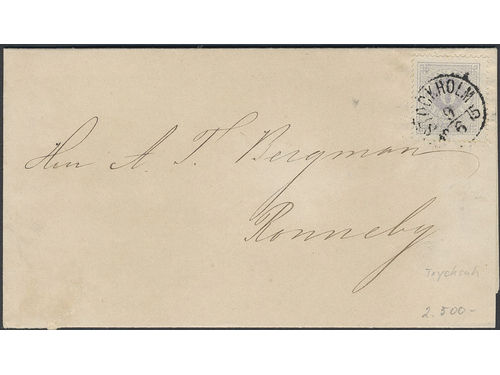 STOCKHOLM 5
Herr A. T. Bergman
Ronneby
Trycksak
2.500-